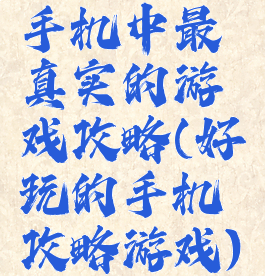 手机中最
真实的游
戏攻略(好
玩的手机
攻略游戏)